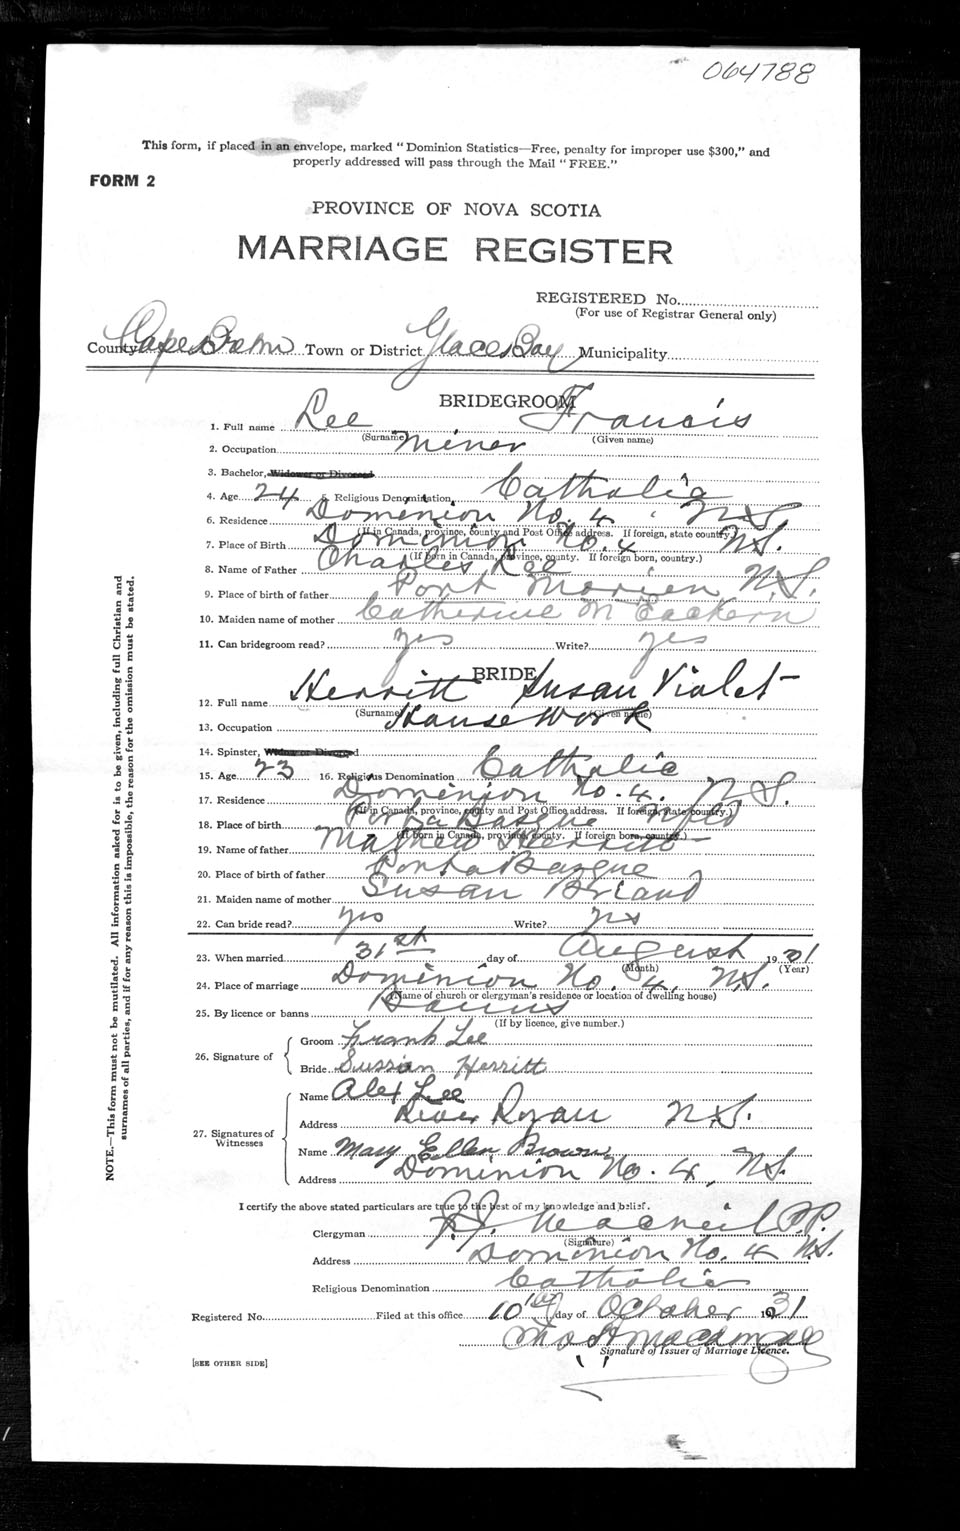 064788
This form, if placed in an envelope, marked "Dominion Statistics—Free, penalty for improper use $300," and
properly addressed will pass through the Mail "FREE."
FORM 2
PROVINCE OF NOVA SCOTIA
MARRIAGE REGISTER
REGISTERED No.
(For use of Registrar General only)
County Cape Breton Town or District Glace Bay Municipality
BRIDEGROOM
1. Full name Lee Francis
(Surname) (Given name)
2. Occupation Miner
3. Bachelor, Widower or Divorced
4. Age 24 5. Religious Denomination Catholic
6. Residence Dominion No. 4 N.S.
(If in Canada, province, county and Post Office address. If foreign, state country.)
7. Place of Birth Dominion No. 4 N.S.
(If born in Canada, province, county. If foreign born, country.)
8. Name of Father Charles Lee
9. Place of birth of father Port Morien, N.S.
10. Maiden name of mother Catherine McEachern
11. Can bridegroom read? yes Write? yes
BRIDE
12. Full name Herritt Susan Violet
(Surname) (Given name)
13. Occupation House Work
14. Spinster, Widow or Divorced
15. Age 23 16. Religious Denomination Catholic
17. Residence Dominion No. 4. N.S.
(If in Canada, province, county and Post Office address. If foreign, state country.)
18. Place of birth Porta Basque Nfld
(If born in Canada, province, county. If foreign born, country.)
19. Name of father Mathew Herritt
20. Place of birth of father Porta Basque
21. Maiden name of mother Susan Briand
22. Can bride read? yes Write? yes
23. When married 31st day of August 1931
(Month) (Year)
24. Place of marriage Dominion No. 4, N.S.
(Name of church or clergyman's residence or location of dwelling house)
25. By licence or banns Banns
(If by licence, give number.)
26. Signature of
Groom Frank Lee
Bride Sussian Herritt
27. Signatures of Witnesses
Name Alex Lee
Address River Ryan N.S.
Name Mary Ellen Brown
Address Dominion No. 4, N.S.
I certify the above stated particulars are true to the best of my knowledge and belief.
Clergyman MacNeil P.P.
(Signature)
Address Dominion No. 4 N.S.
Religious Denomination Catholic
Registered No. Filed at this office 10th day of October 1931
Signature of Issuer of Marriage Licence.
[SEE OTHER SIDE]
NOTE.—This form must not be mutilated. All information asked for is to be given, including full Christian and
surnames of all parties, and if for any reason this is impossible, the reason for the omission must be stated.